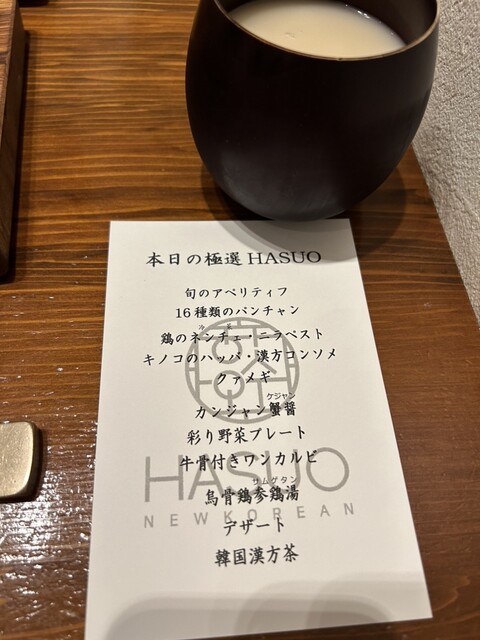 本日の極選 HASUO
旬のアペリティフ
16種類のパンチャン
冷菜
鶏のネンチェ・ニラペスト
キノコのハッパ・漢方コンソメ
クァメギ
ケジャン
カンジャン蟹醤
彩り野菜プレート
牛骨付きワンカルビ
HASUO
サムゲタン
烏骨鶏参鶏湯
NEW KOREAN
デザート
韓国漢方茶